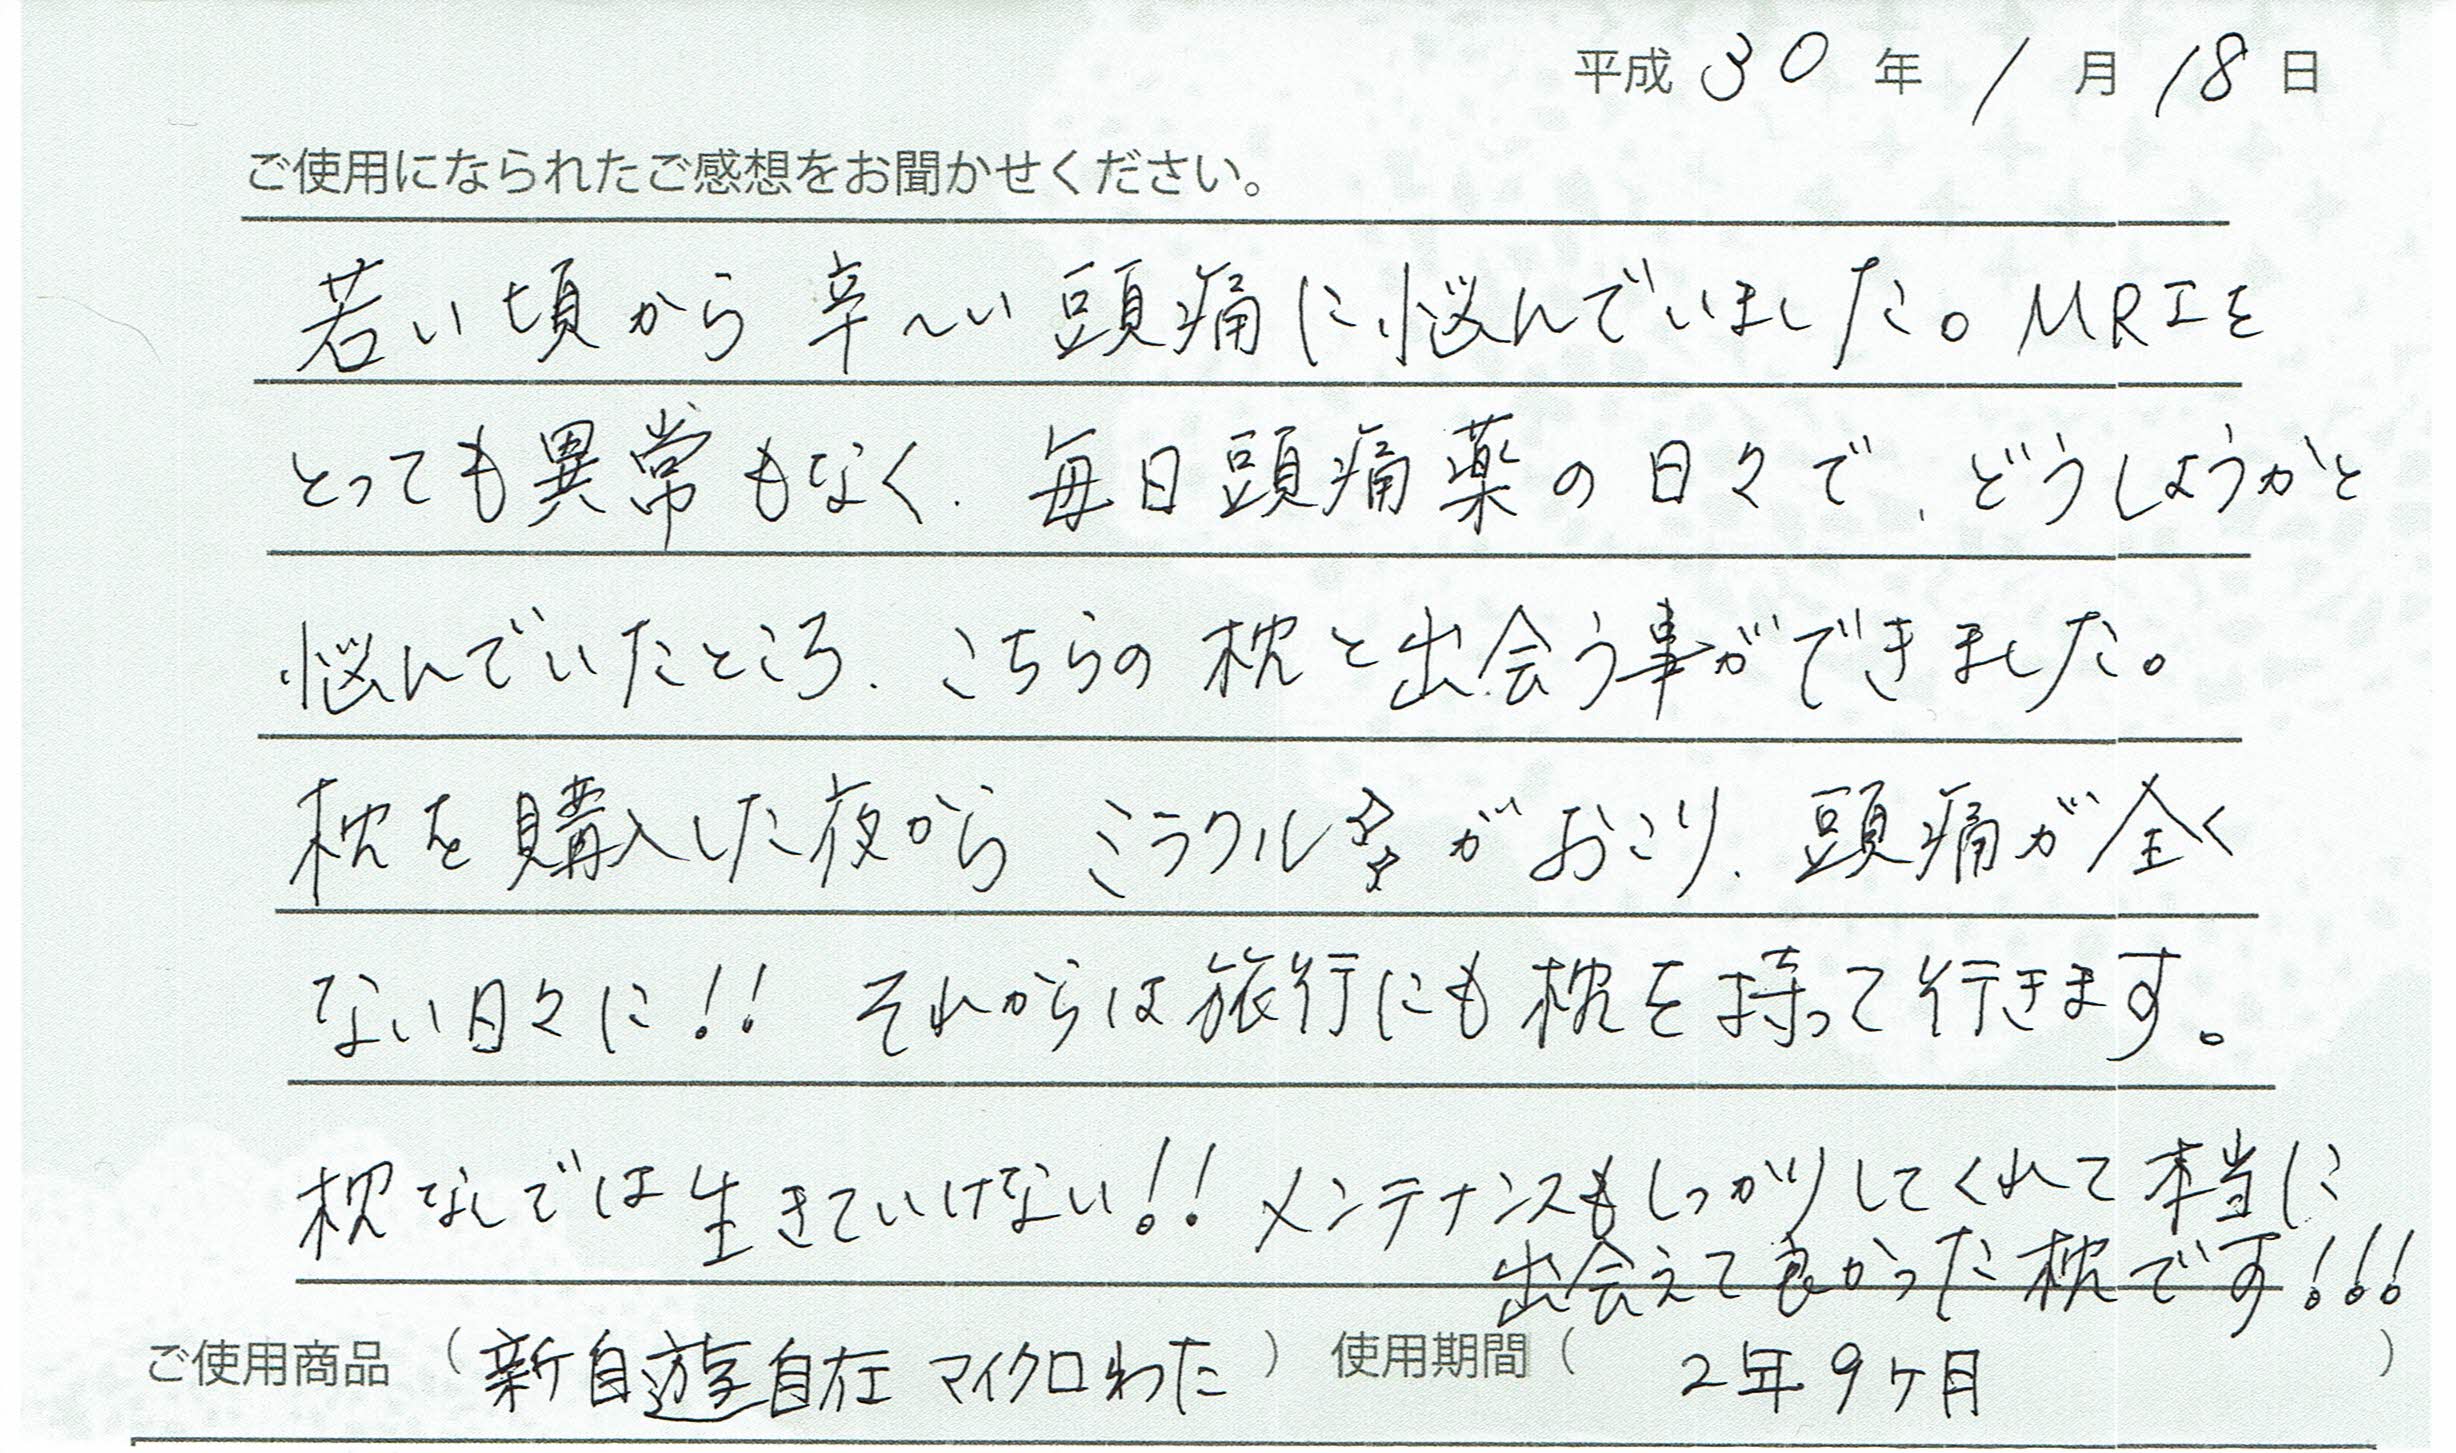 平成 30 年 1 月 18 日
ご使用になられたご感想をお聞かせください。
若い頃から 辛〜い 頭痛に悩んでいました。MRIを
とっても異常もなく、毎日頭痛薬の日々で、どうしようかと
悩んでいたところ、こちらの枕と出会う事ができました。
枕を購入した夜から ミラクル☆☆がおこり、頭痛が全く
ない日々に!! それからは旅行にも枕を持って行きます。
枕なしでは生きていけない!! メンテナンスもしっかりしてくれて本当に
出会えて良かった枕です!!!
ご使用商品 (新自遊自在 マイクロわた) 使用期間 ( 2年9ヶ月 )